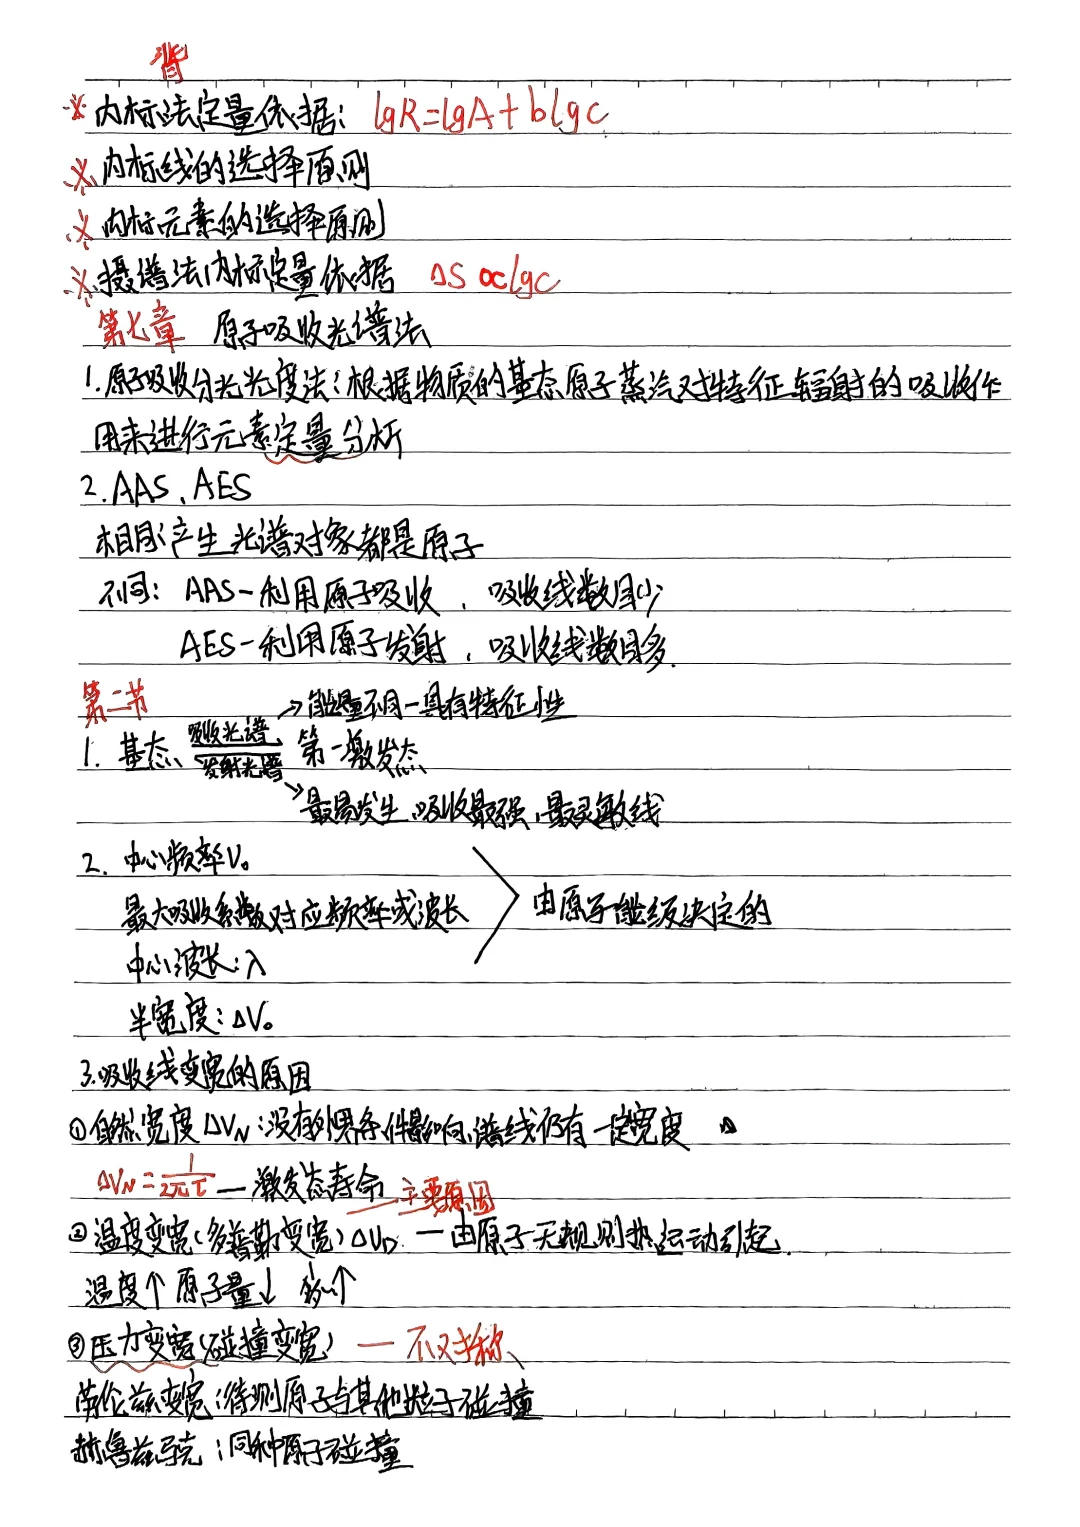 背
※ 内标法定量依据: lgR=lgA+blgc
※ 内标线的选择原则
※ 内标元素的选择原则
※ 摄谱法内标定量依据 ΔS∝lgc
第七章 原子吸收光谱法
1.原子吸收分光光度法:根据物质的基态原子蒸汽对特征辐射的吸收作
用来进行元素定量分析
2.AAS、AES
相同:产生光谱对象都是原子
不同: AAS-利用原子吸收,吸收线数目少
AES-利用原子发射,吸收线数目多.
第二节
→能量不同-具有特征性
1. 基态、吸收光谱 发射光谱 第一激发态
→最易发生、吸收最强、最灵敏线
2. 中心频率V₀
最大吸收系数对应频率或波长 由原子能级决定的
中心波长:λ
半宽度:ΔV₀
3.吸收线变宽的原因
①自然宽度ΔVN:没有外界条件影响,谱线仍有一定宽度
ΔVN=1/2πτ—激发态寿命 主要原因
②温度变宽(多普勒变宽)ΔVD —由原子无规则热运动引起.
温度↑ 原子量↓ ↑
③压力变宽(碰撞变宽) —不对称
劳伦兹变宽:待测原子与其他粒子碰撞
赫鲁兹马克:同种原子碰撞